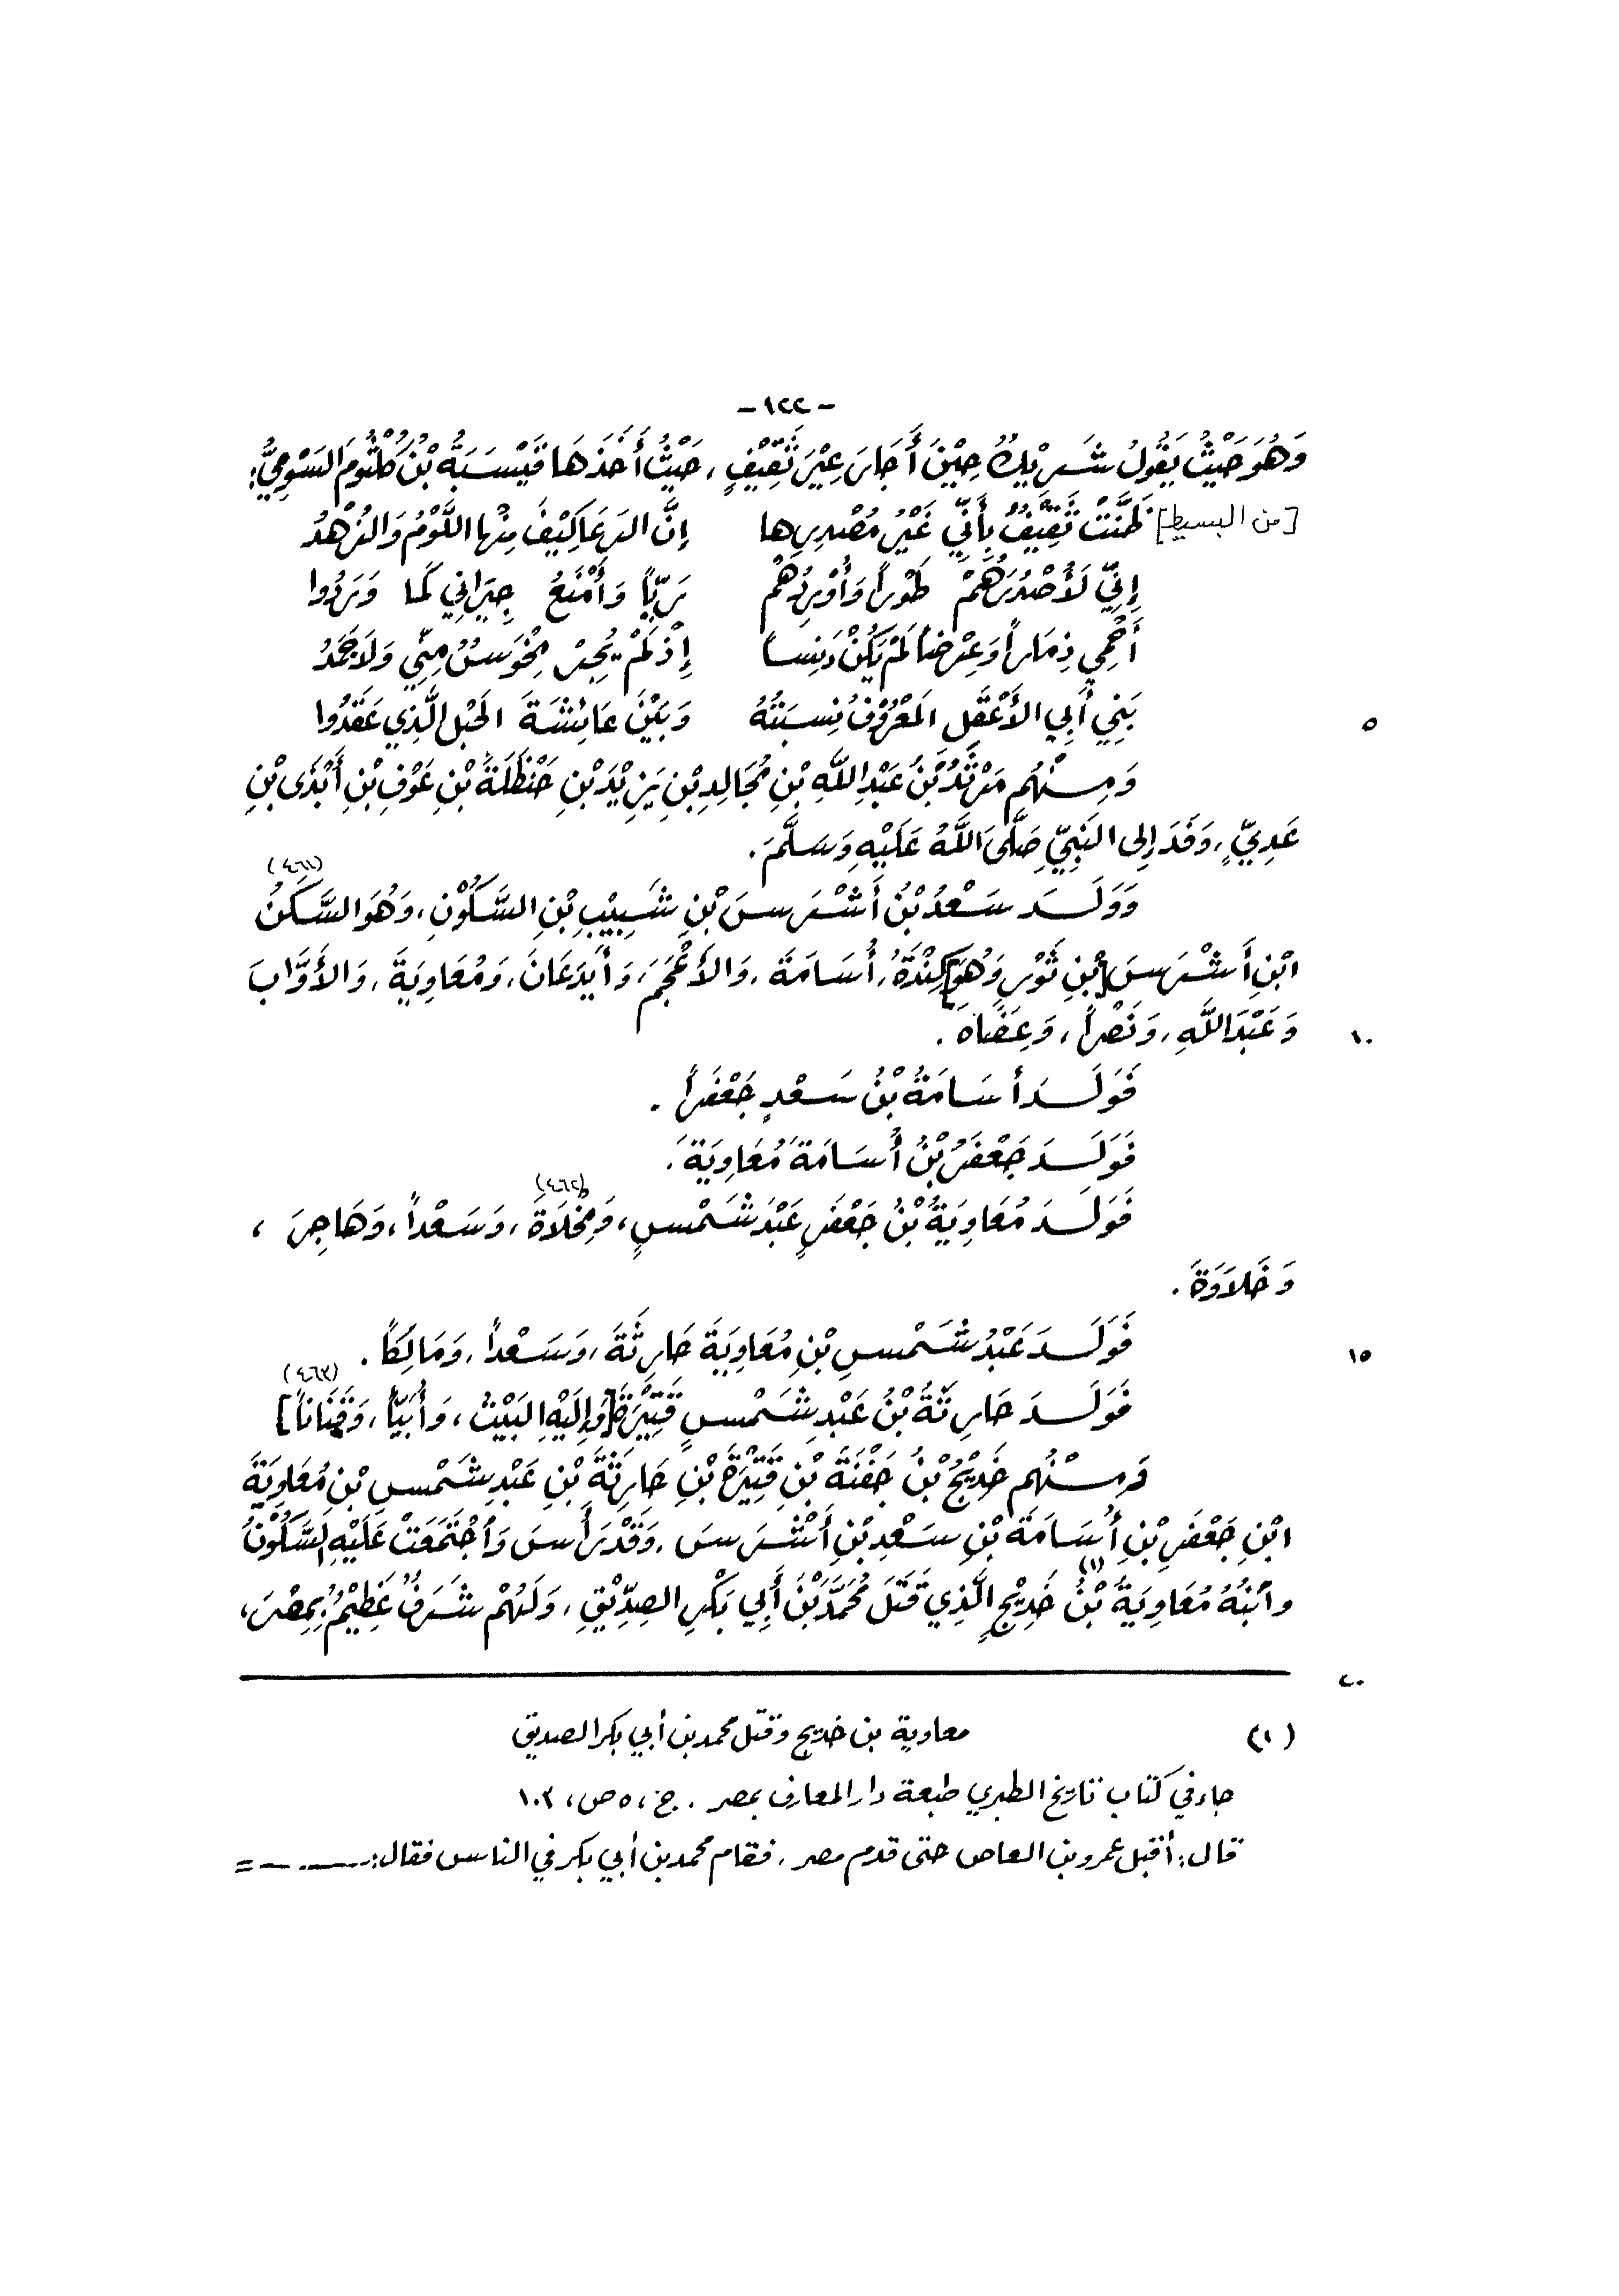 - ١٢٢ -
وَهُوَ حَيْثُ يَقُولُ شَرِيْكُ حِيْنَ أَجَارَ عِيْرَ ثَقِيْفٍ، حَيْثُ أَخَذَهَا قَيْسَبَةُ بْنُ كُلْثُومَ السَّوْمِيُّ:
[من البسيط] ظَنَّتْ ثَقِيْفٌ بِأَنِّي غَيْرُ مُصْدِرِها إِنَّ الرعَا كِيْفَ مِنْها اللَّوْمُ وَالزُّهْدُ
إِنِّي لَأُصْدِرُهُمْ طَوْراً وَأُوْرِدُهُمْ رَيّاً وَأَمْنَعُ جِيرَانِي كَمَا وَرَدُوا
أَحْمِي ذِمَاراً وَعِرْضاً لَمْ يَكُنْ دَنِساً إِذْ لَمْ يُجِرْ مِخْوَسٌ مِنِّي وَلَا جَمَدُ
بَنِي أَبِي الأَعْقَلِ المَعْرُوْفُ نِسبَتُهُ وَبَيْنَ عَائِشَةَ الحَبْلِ الَّذِي عَقَدُوا
٥
وَمِنْهُم مَرْثَدُ بْنُ عَبْدِ اللَّهِ بْنِ مُجَالِدِ بْنِ يَزِيْدَ بْنِ حَنْظَلَةَ بْنِ عَوْفِ بْنِ أَبْذَى بْنِ
عَدِيٍّ، وَفَدَ إِلى النَبِيِّ صَلَّى اللَّهُ عَلَيْهِ وَسَلَّمَ.
وَوَلَدَ سَعْدُ بْنُ أَشْرَسَ بْنِ شَبِيْبِ بْنِ السَّكُوْنِ، وَهُوَ السَّكَنُ (٤٦١)
ابْنِ أَشْرَسَ [بْنِ ثَوْرٍ وَهُوَ] كِنْدَةُ، أُسَامَةَ، وَالأَعْجَمَ، وَأَيْدَعَانَ، وَمُعَاوِيَةَ، وَالأَوَّابَ
وَعَبْدَ اللَّهِ، وَنَصْراً، وَعِضَاه.
١٠
فَوَلَدَ أُسَامَةُ بْنُ سَعْدٍ جَعْفَراً.
فَوَلَدَ جَعْفَرُ بْنُ أُسَامَةَ مُعَاوِيَةَ.
فَوَلَدَ مُعَاوِيَةُ بْنُ جَعْفَرٍ عَبْدَ شَمْسٍ، وَمِخْلَاةَ (٤٦٢)، وَسَعْداً، وَهَاجِرَ،
وَخَلَاوَةَ.
فَوَلَدَ عَبْدُ شَمْسِ بْنِ مُعَاوِيَةَ حَارِثَةَ، وَسَعْداً، وَمَالِكاً.
١٥
فَوَلَدَ حَارِثَةُ بْنُ عَبْدِ شَمْسٍ قَتِيْرَةَ [وَإِلَيْهِ البَيْتُ، وَأُبَيّاً، وَقِنَاناً] (٤٦٣)
وَمِنْهُم خَدِيْجُ بْنُ جَفْنَةَ بْنِ قَتِيْرَةَ بْنِ حَارِثَةَ بْنِ عَبْدِ شَمْسِ بْنِ مُعَاوِيَةَ
ابْنِ جَعْفَرِ بْنِ أُسَامَةَ بْنِ سَعْدِ بْنِ أَشْرَسَ، وَقَدْ رَأَسَ وَاجْتَمَعَتْ عَلَيْهِ السَّكُوْنُ
وابْنُهُ مُعَاوِيَةُ بْنُ خَدِيْجٍ (١) الَّذِي قَتَلَ مُحَمَّدَ بْنَ أَبِي بَكْرِ الصِدِّيْقِ، وَلَهُمْ شَرَفٌ عَظِيْمٌ بِمِصْرَ،
٢٠
(١) معاوية بن خديج وقتل محمد بن أبي بكر الصديق
جاء في كتاب تاريخ الطبري طبعة دار المعارف بمصر. ج، ٥ ص، ١٠٣
قال: أقبل عمرو بن العاص حتى قدم مصر، فقام محمد بن أبي بكر في الناس فقال: =